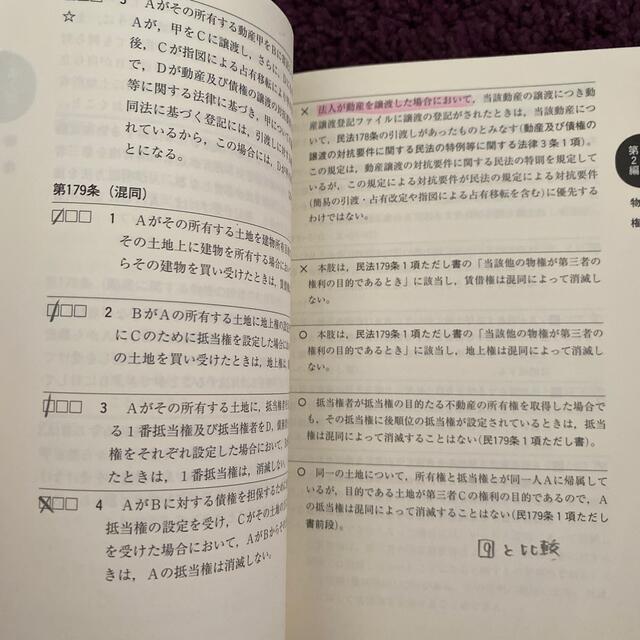 Aがその所有する動産甲をBに
☆ Aが,甲をCに譲渡し,さらに,D
後,Cが指図による占有移転
で,Dが動産及び債権の譲渡の対抗
等に関する法律に基づき,甲について
同法に基づく登記には,引渡しに
れているから,この場合には,Dが
とになる。
第179条(混同)
□□□ 1 Aがその所有する土地を建物所有
その土地上に建物を所有する場合にお
らその建物を買い受けたときは,賃
□□□ 2 BがAの所有する土地に地上権の設
にCのために抵当権を設定した場合に
の土地を買い受けたときは,地上権は,
□□□ 3 Aがその所有する土地に,抵当権者を
る1番抵当権及び抵当権者をD,債務
権をそれぞれ設定した場合において,
たときは,1番抵当権は,消滅しない。
□□□ 4 AがBに対する債権を担保するために
抵当権の設定を受け,Cがその土地の
を受けた場合において,AがBからその
きは,Aの抵当権は消滅しない。
× 法人が動産を譲渡した場合において,当該動産の譲渡につき動
産譲渡登記ファイルに譲渡の登記がされたときは,当該動産につ
いて,民法178条の引渡しがあったものとみなす(動産及び債権の
譲渡の対抗要件に関する民法の特例等に関する法律3条1項)。
この規定は,動産譲渡の対抗要件に関する民法の特則を規定して
いるが,この規定による対抗要件が民法の規定による対抗要件
(簡易の引渡・占有改定や指図による占有移転を含む)に優先する
わけではない。
× 本肢は,民法179条1項ただし書の「当該他の物権が第三者の
権利の目的であるとき」に該当し,賃借権は混同によって消滅し
ない。
○ 本肢は,民法179条1項ただし書の「当該他の物権が第三者の
権利の目的であるとき」に該当し,地上権は混同によって消滅し
ない。
○ 抵当権者が抵当権の目的たる不動産の所有権を取得した場合で
も,その抵当権に後順位の抵当権が設定されているときは,抵当
権は混同によって消滅することはない(民179条1項ただし書)。
○ 同一の土地について,所有権と抵当権とが同一人Aに帰属して
いるが,目的である土地が第三者Cの権利の目的であるので,A
の抵当権は混同によって消滅することはない(民179条1項ただし
書前段)。
9 と比較
第2編
物権